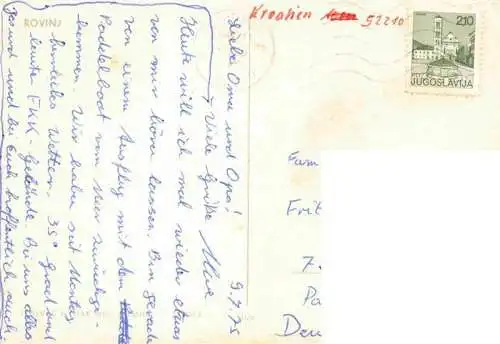 ROVINJ
Kroatien 52210
2.10
JUGOSLAVIJA
9.7.75
Liebe Oma und Opa!
Heute will ich mal wieder etwas
von mir hören lassen. Bin gerade
von einem Ausflug mit dem
Paddelboot vom Meer zurückge-
kommen. Wir haben seit Montag
herrliches Wetter. 35° Grad und
FKK-Gelände. Bei uns alles
gesund und bei Euch hoffentlich auch
Viele Grüße
Fam
Frit
7.
Pa
Deu